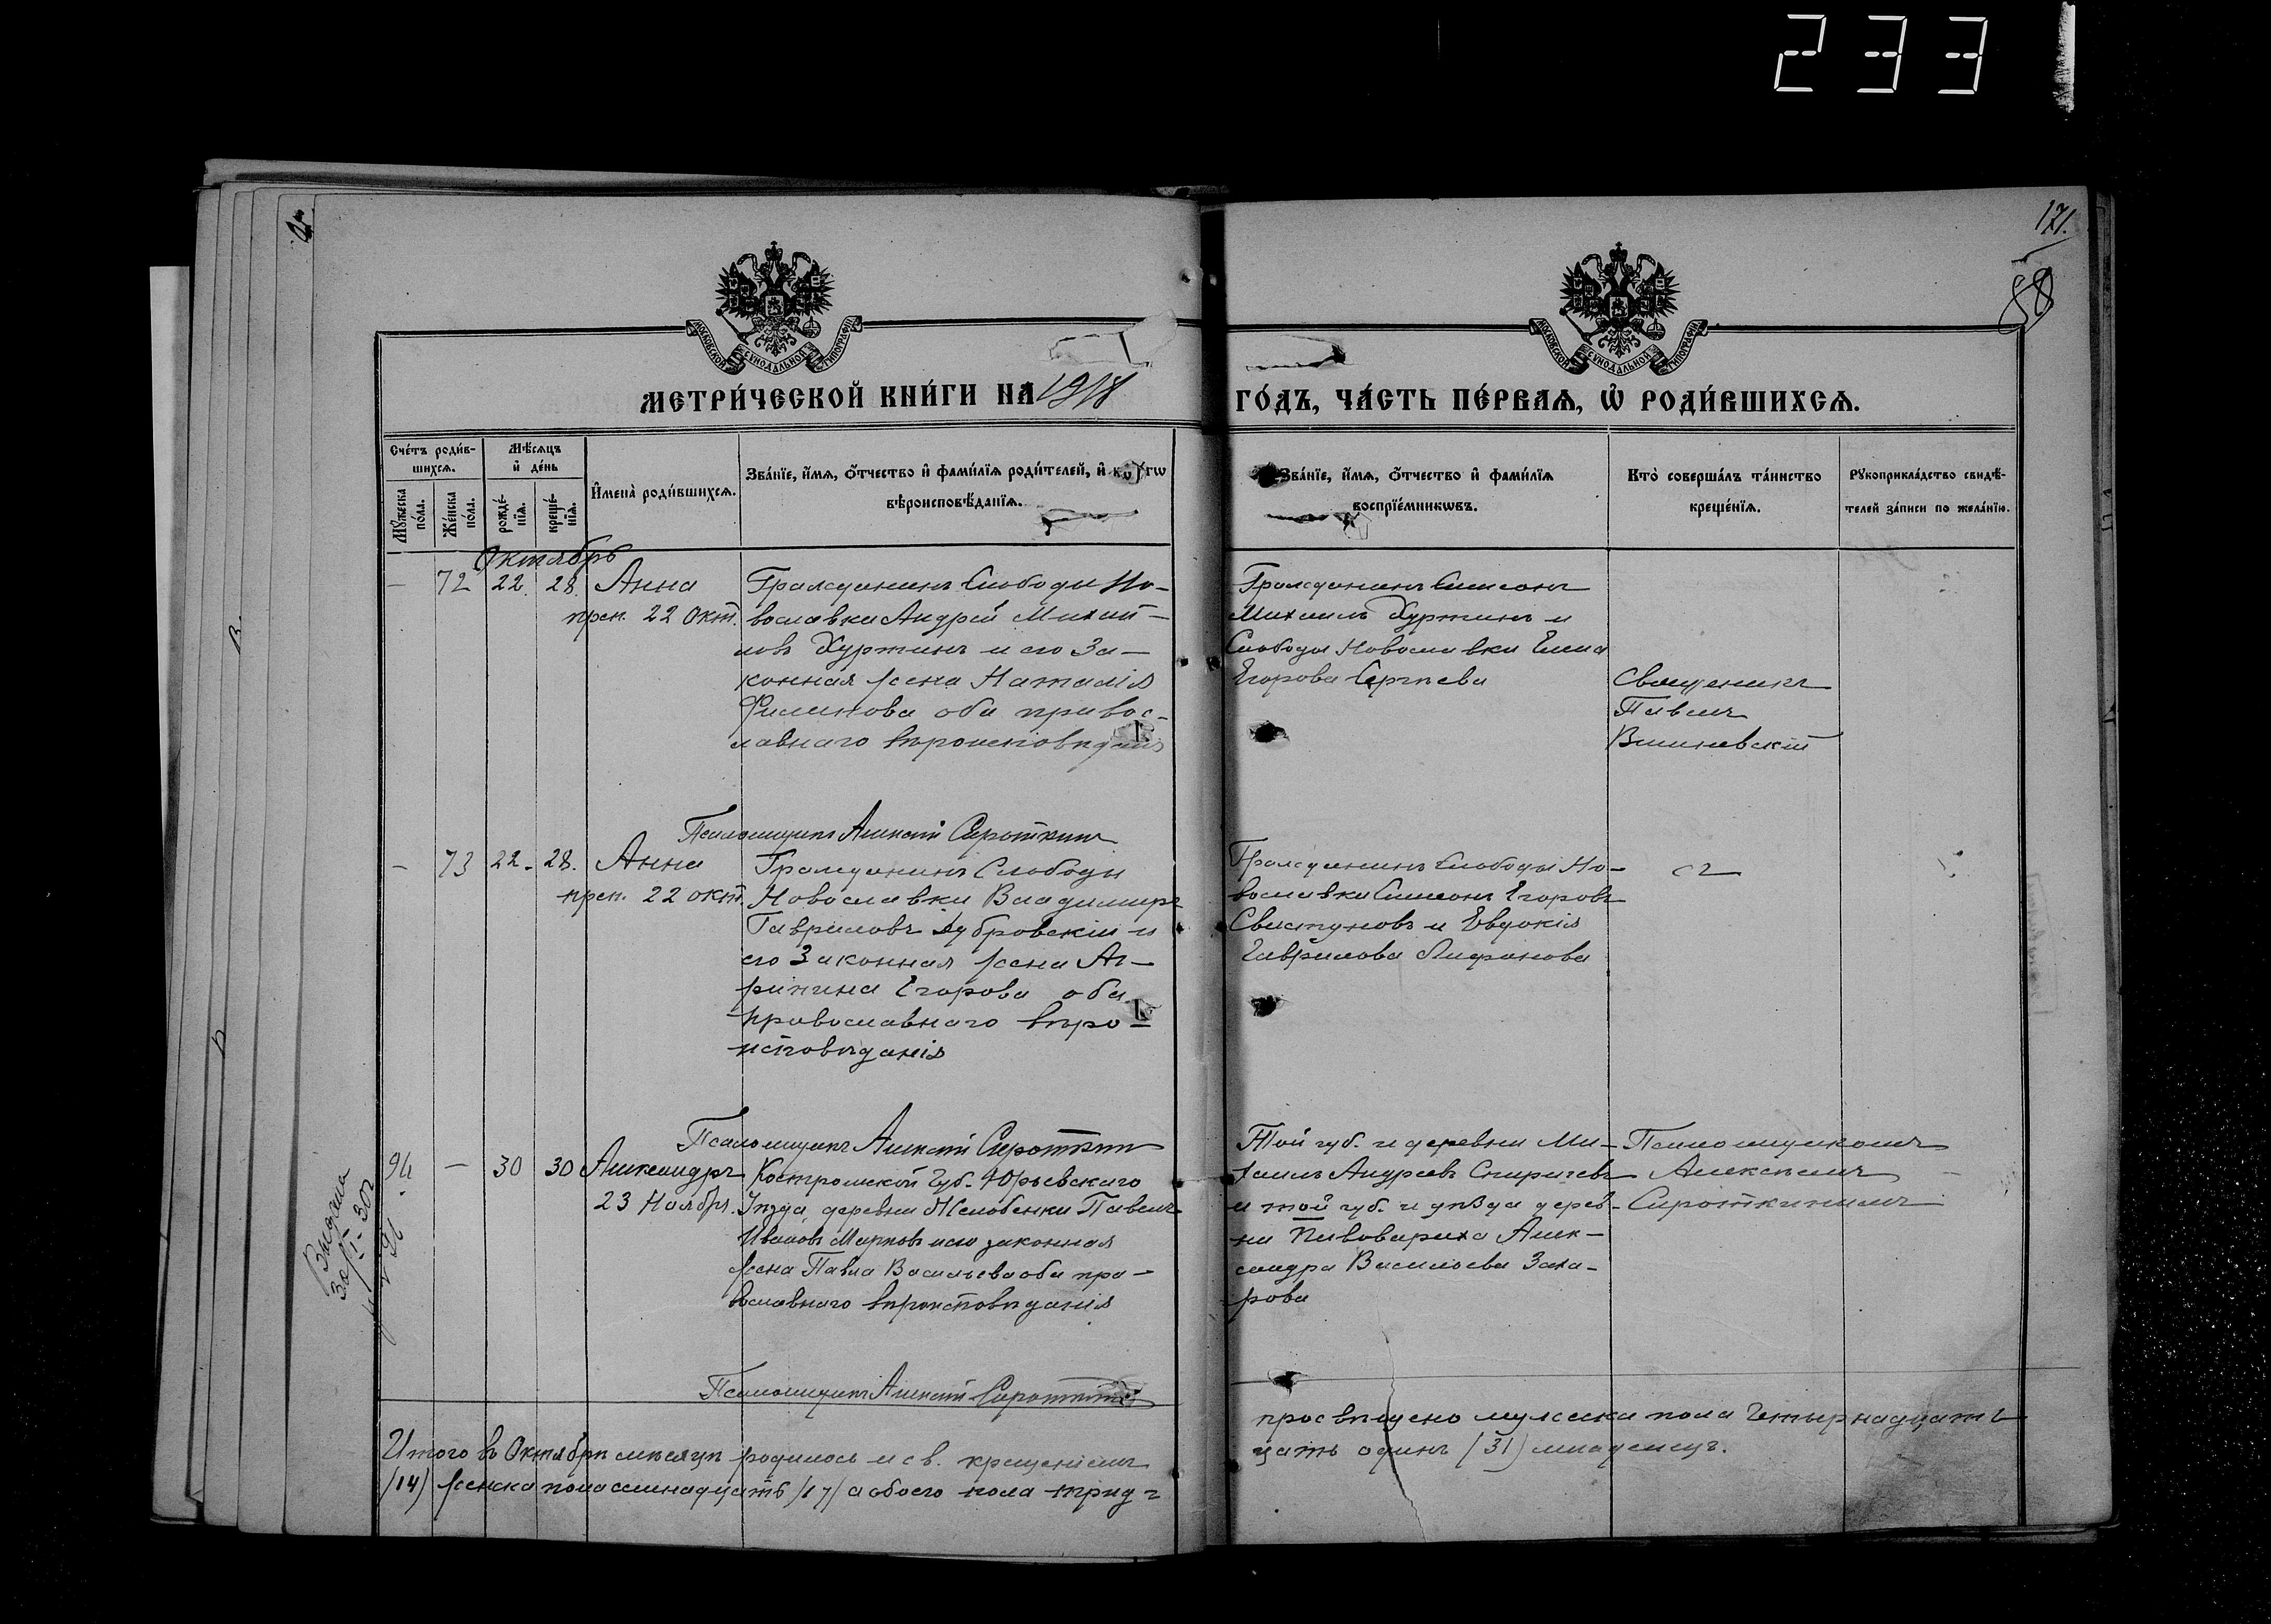 233
171.
88
МОСКОВСКОЙ СѴНОДАЛЬНОЙ ТИПОГРАФІИ
МОСКОВСКОЙ СѴНОДАЛЬНОЙ ТИПОГРАФІИ
МЕТРИ́ЧЕСКОЙ КНИ́ГИ НА 1918
ГО́ДЪ, ЧА́СТЬ ПЕ́РВАѦ, Ѡ҆ РОДИ́ВШИХСѦ.
Сче́тъ роди́в-
шихсѧ.
Мѣ́сѧцъ
и҆ де́нь
Мꙋ́жеска по́ла.
Же́нска по́ла.
рожде́-нїѧ.
креще́-нїѧ.
И҆мена̀ роди́вшихсѧ.
Зва́нїе, и҆́мѧ, ѻ҆́тчество и҆ фами́лїѧ роди́телей, и҆
вѣроисповѣ́данїѧ.
Зва́нїе, и҆́мѧ, ѻ҆́тчество и҆ фами́лїѧ
воспрїе́мникѡвъ.
Кто̀ соверша́лъ та́инство
креще́нїѧ.
Рꙋкоприкла́дство свидѣ́-
телей за́писи по жела́нїю.
Октябрь
— 72 22. 28. Анна
преп. 22 Окт.
Гражданинъ Слободы Но-
вославки Андрей Михай-
ловъ Хуртинъ и его За-
конная жена Наталія
Филипова оба правос-
лавнаго вѣроисповѣданія
Гражданинъ Симеонъ
Михаилъ Хуртинъ и
Слободы Новославки Елена
Егорова Сергѣева
Священикъ
Павелъ
Вишневскій
Псаломщикъ Алексѣй Сироткинъ
— 73 22. 28. Анна
преп. 22 окт.
Гражданинъ Слободы
Новославки Владимиръ
Гавриловъ Дубровскій и
его Законная жена Аг-
рипина Егорова оба
православнаго вѣро-
исповѣданія
Гражданинъ Слободы Но-
вославки Симеонъ Егоровъ
Свистуновъ и Евдокія
Гаврилова
Псаломщикъ Алексѣй Сироткинъ
94 — 30 30 Александръ
23 Ноября.
Костромской Губ. Юрьевскаго
Уѣзда деревни Жслобенки Павелъ
Ивановъ Марковъ и его законная
жена Павла Васильева оба пра-
вославнаго вѣроисповѣданія
Той губ. и деревни Ми-
хаилъ Андреевъ Спиричевъ
и той губ. и уѣзда дерев-
ни Пивовариха Алек-
сандра Васильева Заха-
рова
Псаломщикомъ
Алексѣемъ
Сироткинымъ
Псаломщикъ Алексѣй Сироткинъ
Итого въ Октябрѣ мѣсяцѣ родилось и св. крещеніемъ
просвѣщено мужска пола Четырнадцать
/14/ женска пола семнадцать /17/ а обоего пола трид-
цать одинъ /31/ младенецъ.